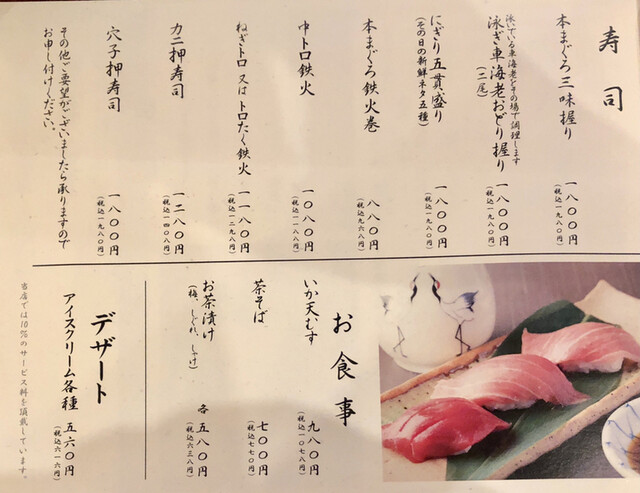 寿司
本まぐろ三味握り
一八〇〇円
(税込一九八〇円)
泳いでいる車海老をその場で調理します
泳ぎ車海老おどり握り
(二尾)
一八〇〇円
(税込一九八〇円)
にぎり五貫盛り
(その日の新鮮ネタ五種)
一八〇〇円
(税込一九八〇円)
本まぐろ鉄火巻
八八〇円
(税込九六八円)
中トロ鉄火
一〇八〇円
(税込一一八八円)
ねぎトロ 又は トロたく鉄火
一一八〇円
(税込一二九八円)
カニ押寿司
一二八〇円
(税込一四〇八円)
穴子押寿司
一八〇〇円
(税込一九八〇円)
その他ご要望がございましたら承りますので
お申し付けください。
お食事
いか天むす
九八〇円
(税込一〇七八円)
茶そば
七〇〇円
(税込七七〇円)
お茶漬け
(梅、しぐれ、しゃけ)
各 五八〇円
(税込六三八円)
デザート
アイスクリーム各種
五六〇円
(税込六一六円)
当店では10%のサービス料を頂戴しています。